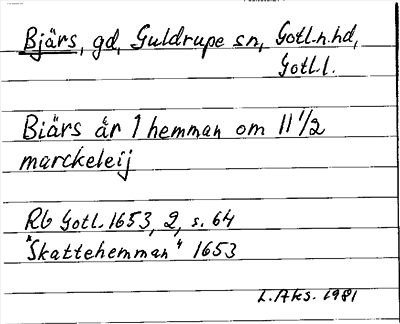 Bjärs, gd, Guldrupe sn, Gotl.n.hd,
Gotl.l.
Biärs är 1 hemman om 11 1/2
marckeleij
Rb Gotl. 1653, 2, s. 64
"Skattehemman" 1653
L.Aks. 1981